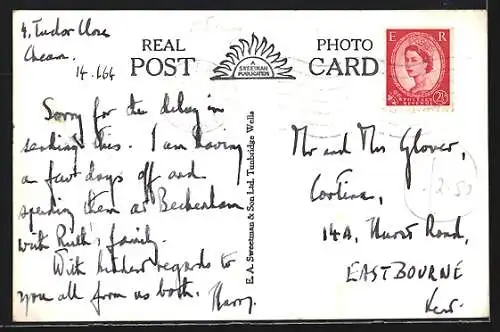 4, Tudor Close
Cheam.
14.1.64
REAL PHOTO
POST CARD
A
SWEETMAN
PUBLICATION
E R
POSTAGE
REVENUE
2½D
Sorry for the delay in
sending this. I am having
a few days off and
spending them at Beckenham
with Ruth's family.
With kindest regards to
you all from us both. Harry.
E. A. Sweetman & Son Ltd. Tunbridge Wells
Mr and Mrs Glover,
Cortina,
14A, Hurst Road,
EASTBOURNE
Kent.
2.50